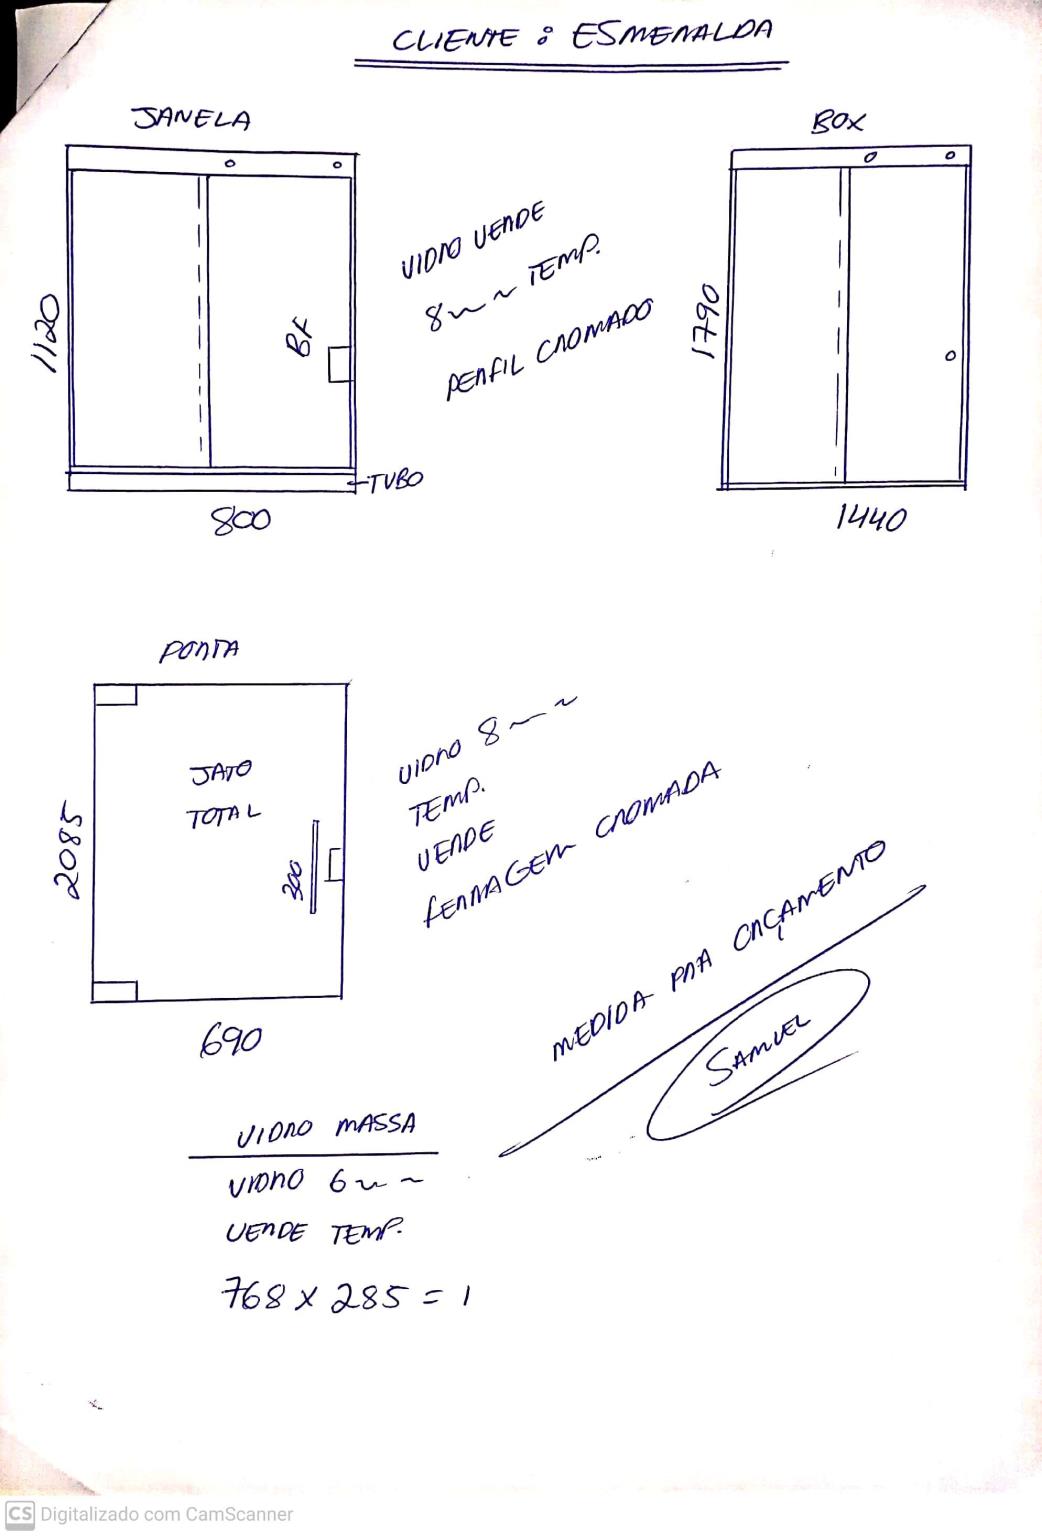 CLIENTE : ESMERALDA
JANELA
BOX
1120
BX
TUBO
800
VIDRO VERDE
8mm TEMP.
PERFIL CROMADO
1790
1440
PORTA
JATO
TOTAL
2085
300
690
VIDRO 8mm
TEMP.
VERDE
FERRAGEM CROMADA
MEDIDA PRA ORÇAMENTO
SAMUEL
VIDRO MASSA
VIDRO 6mm
VERDE TEMP.
768 x 285 = 1
CS Digitalizado com CamScanner